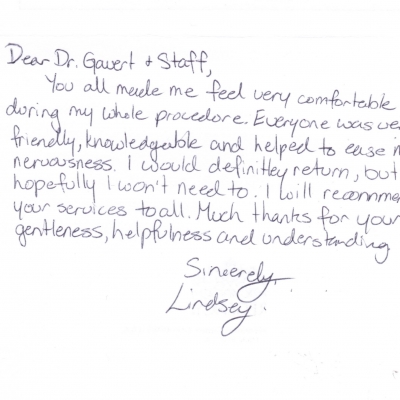 Dear Dr. Gavert & Staff,
You all made me feel very comfortable
during my whole procedore. Everyone was ve
friendly, knowledgeable and helped to ease m
nervousness. I would definitley return, but
hopefully I won't need to. I will recomme
your services to all. Much thanks for your
gentleness, helpfulness and understanding
Sincerely,
Lindsey.